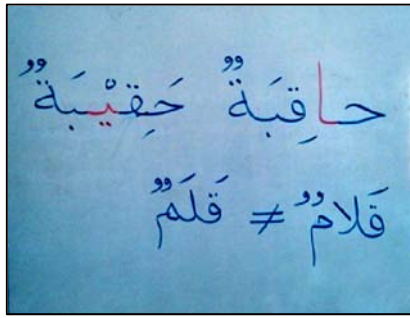 حاقِبَةٌ حَقِيْبَةٌ
قَلامٌ ≠ قَلَمٌ